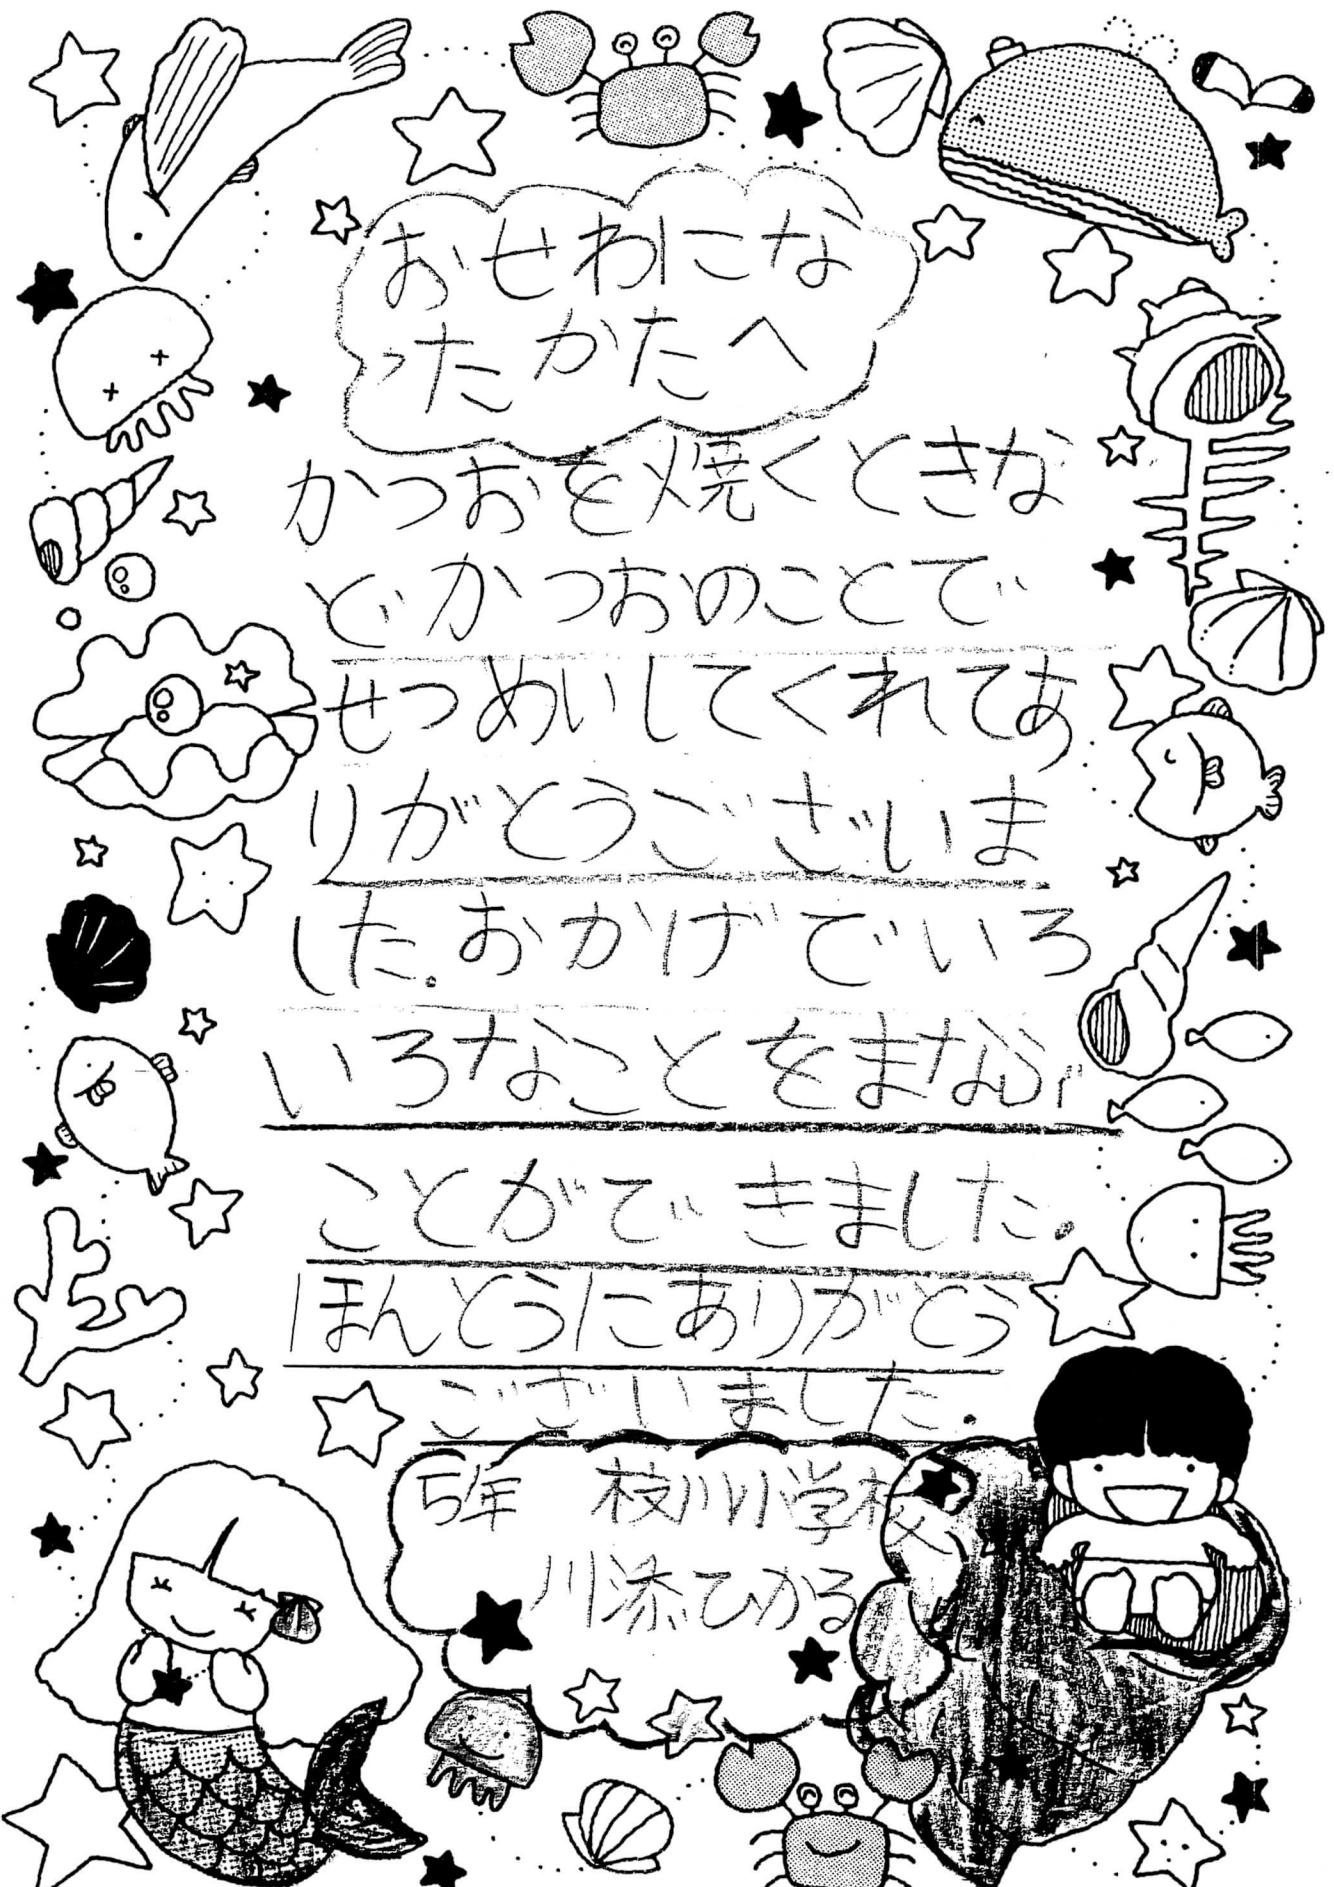 おせわにな
ったかたへ
かつおを焼くときな
どかつおのことで
せつめいしてくれてあ
りがとうございま
した。おかげでいろ
いろなことをまなぶ
ことができました。
ほんとうにありがとう
ございました。
5年 枝川小学校
川添ひかる